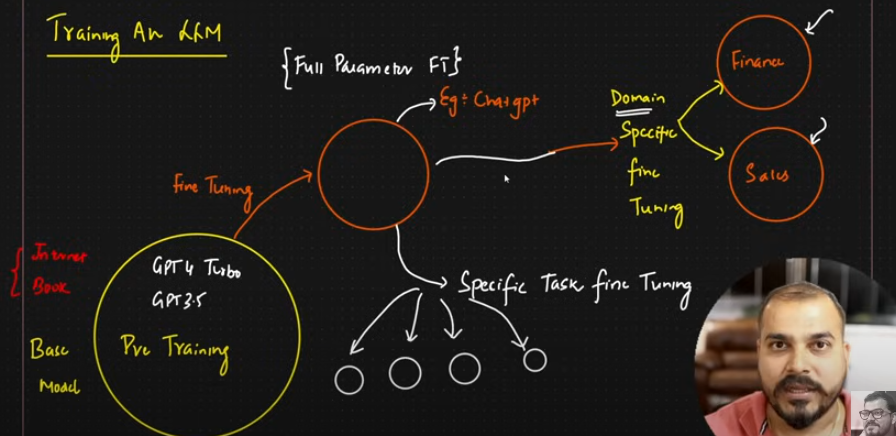 Training An LLM
{Full Parameter FT}
Eg:- Chatgpt
Finance
Domain
Specific
fine
Tuning
Sales
Fine Tuning
{Internet
Book
GPT4 Turbo
GPT3.5
Base
Model
Pre Training
Specific Task fine Tuning